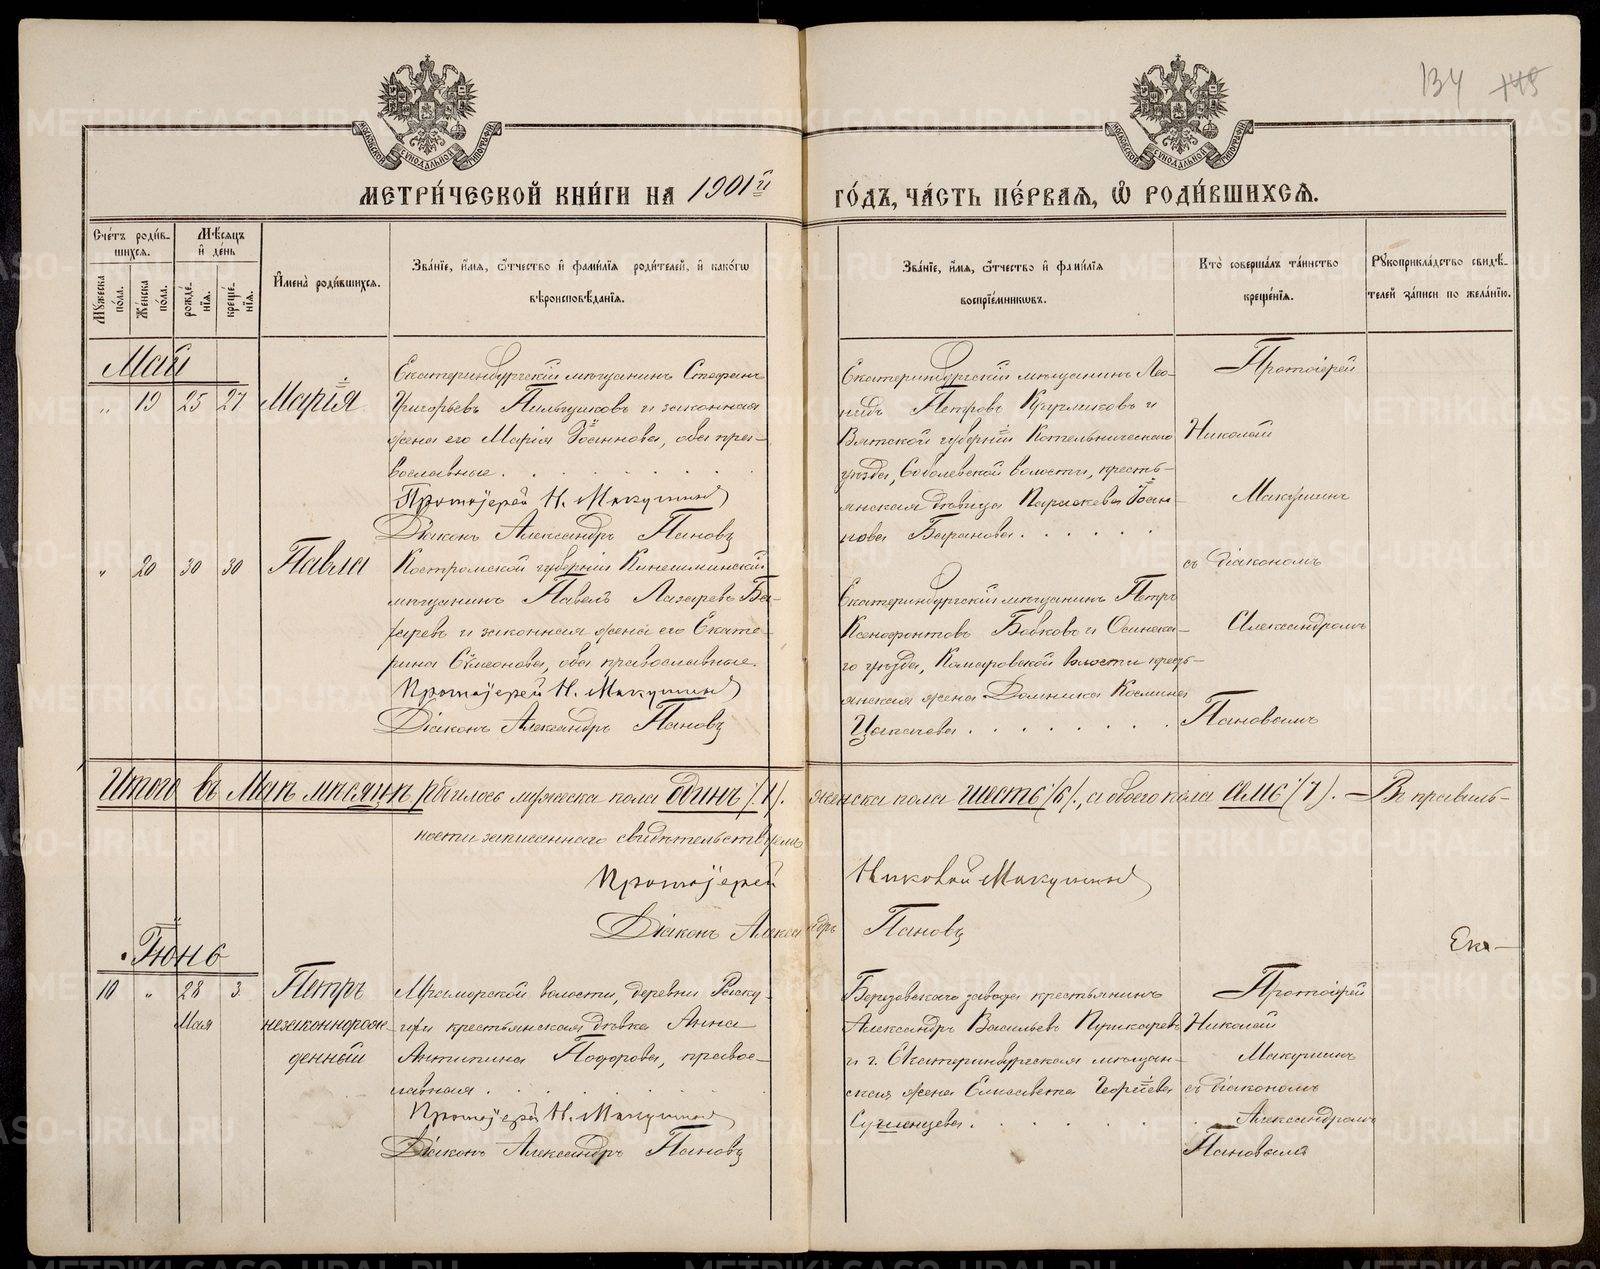 134 145
МОСКОВСКОЙ СѴНОДАЛЬНОЙ ТИПОГРАФІИ
МОСКОВСКОЙ СѴНОДАЛЬНОЙ ТИПОГРАФІИ
МЕТРИ́ЧЕСКОЙ КНИ́ГИ НА 1901й ГО́ДЪ, ЧА́СТЬ ПЕ́РВАЯ, Ѡ РОДИ́ВШИХСЯ.
Сче́тъ роди́в-
шихся.
Мѣ́сяцъ
и҆ де́нь
Мꙋ́жеска
по́ла.
Же́нска
по́ла.
рожде́-
нїя.
креще́-
нїя.
И҆мена̀ роди́вшихся.
Зва́нїе, и҆́мя, ѻ҆́тчество и҆ фами́лїя роди́телей, и҆ како́гѡ
вѣроисповѣ́данїя.
Зва́нїе, и҆́мя, ѻ҆́тчество и҆ фами́лїя
воспрїе́мниковъ.
Кто̀ соверша́лъ та́инство
креще́нїя.
Рꙋкоприкла́дство свидѣ́-
телей за́писи по жела́нїю.
Май
" 19 25 27 Марія
Екатеринбургскій мѣщанинъ Стефанъ
Григорьевъ Пильщиковъ и законная
жена его Марія Іоаннова, оба пра-
вославные.
Протоіерей Н. Макушинъ
Діаконъ Александръ Пановъ
Екатеринбургскій мѣщанинъ Лео-
нидъ Петровъ и
Вятской губерніи Котельническаго
уѣзда, Соболевской волости, кресть-
янская дѣвица Параскева Іоан-
нова Баранова.
Протоіерей
Николай
Макушинъ
съ діакономъ
Александромъ
Пановымъ
" 20 30 30 Павла
Костромской губерніи Кинешминскій
мѣщанинъ Павелъ Лазаревъ Ба-
харевъ и законная жена его Екате-
рина Сѵмеонова, оба православные.
Протоіерей Н. Макушинъ
Діаконъ Александръ Пановъ
Екатеринбургскій мѣщанинъ Петръ
Ксенофонтовъ Бабковъ и Осинска-
го уѣзда, Комаровской волости кресть-
янская жена Домника Космина
Итого въ Маѣ мѣсяцѣ родилось мужеска пола одинъ /1/. женска пола шесть /6/., а обоего пола семь /7/. – Въ правиль-
ности записаннаго свидѣтельствуемъ
Протоіерей Николай Макушинъ
Діаконъ Александръ Пановъ
Ека-
Іюнь
10 " 28 3. Петръ
Мая незаконнорож-
денный
Мраморской волости, деревни Раску-
ихи крестьянская дѣвка Анна
Антипина Федорова, правос-
лавная.
Протоіерей Н. Макушинъ
Діаконъ Александръ Пановъ
Березовскаго завода крестьянинъ
Александръ Васильевъ Пушкаревъ
и г. Екатеринбургская мѣщан-
ская жена Елисавета Георгіева
Протоіерей
Николай
Макушинъ
съ діакономъ
Александромъ
Пановымъ
METRIKI.GASO-URAL.RU